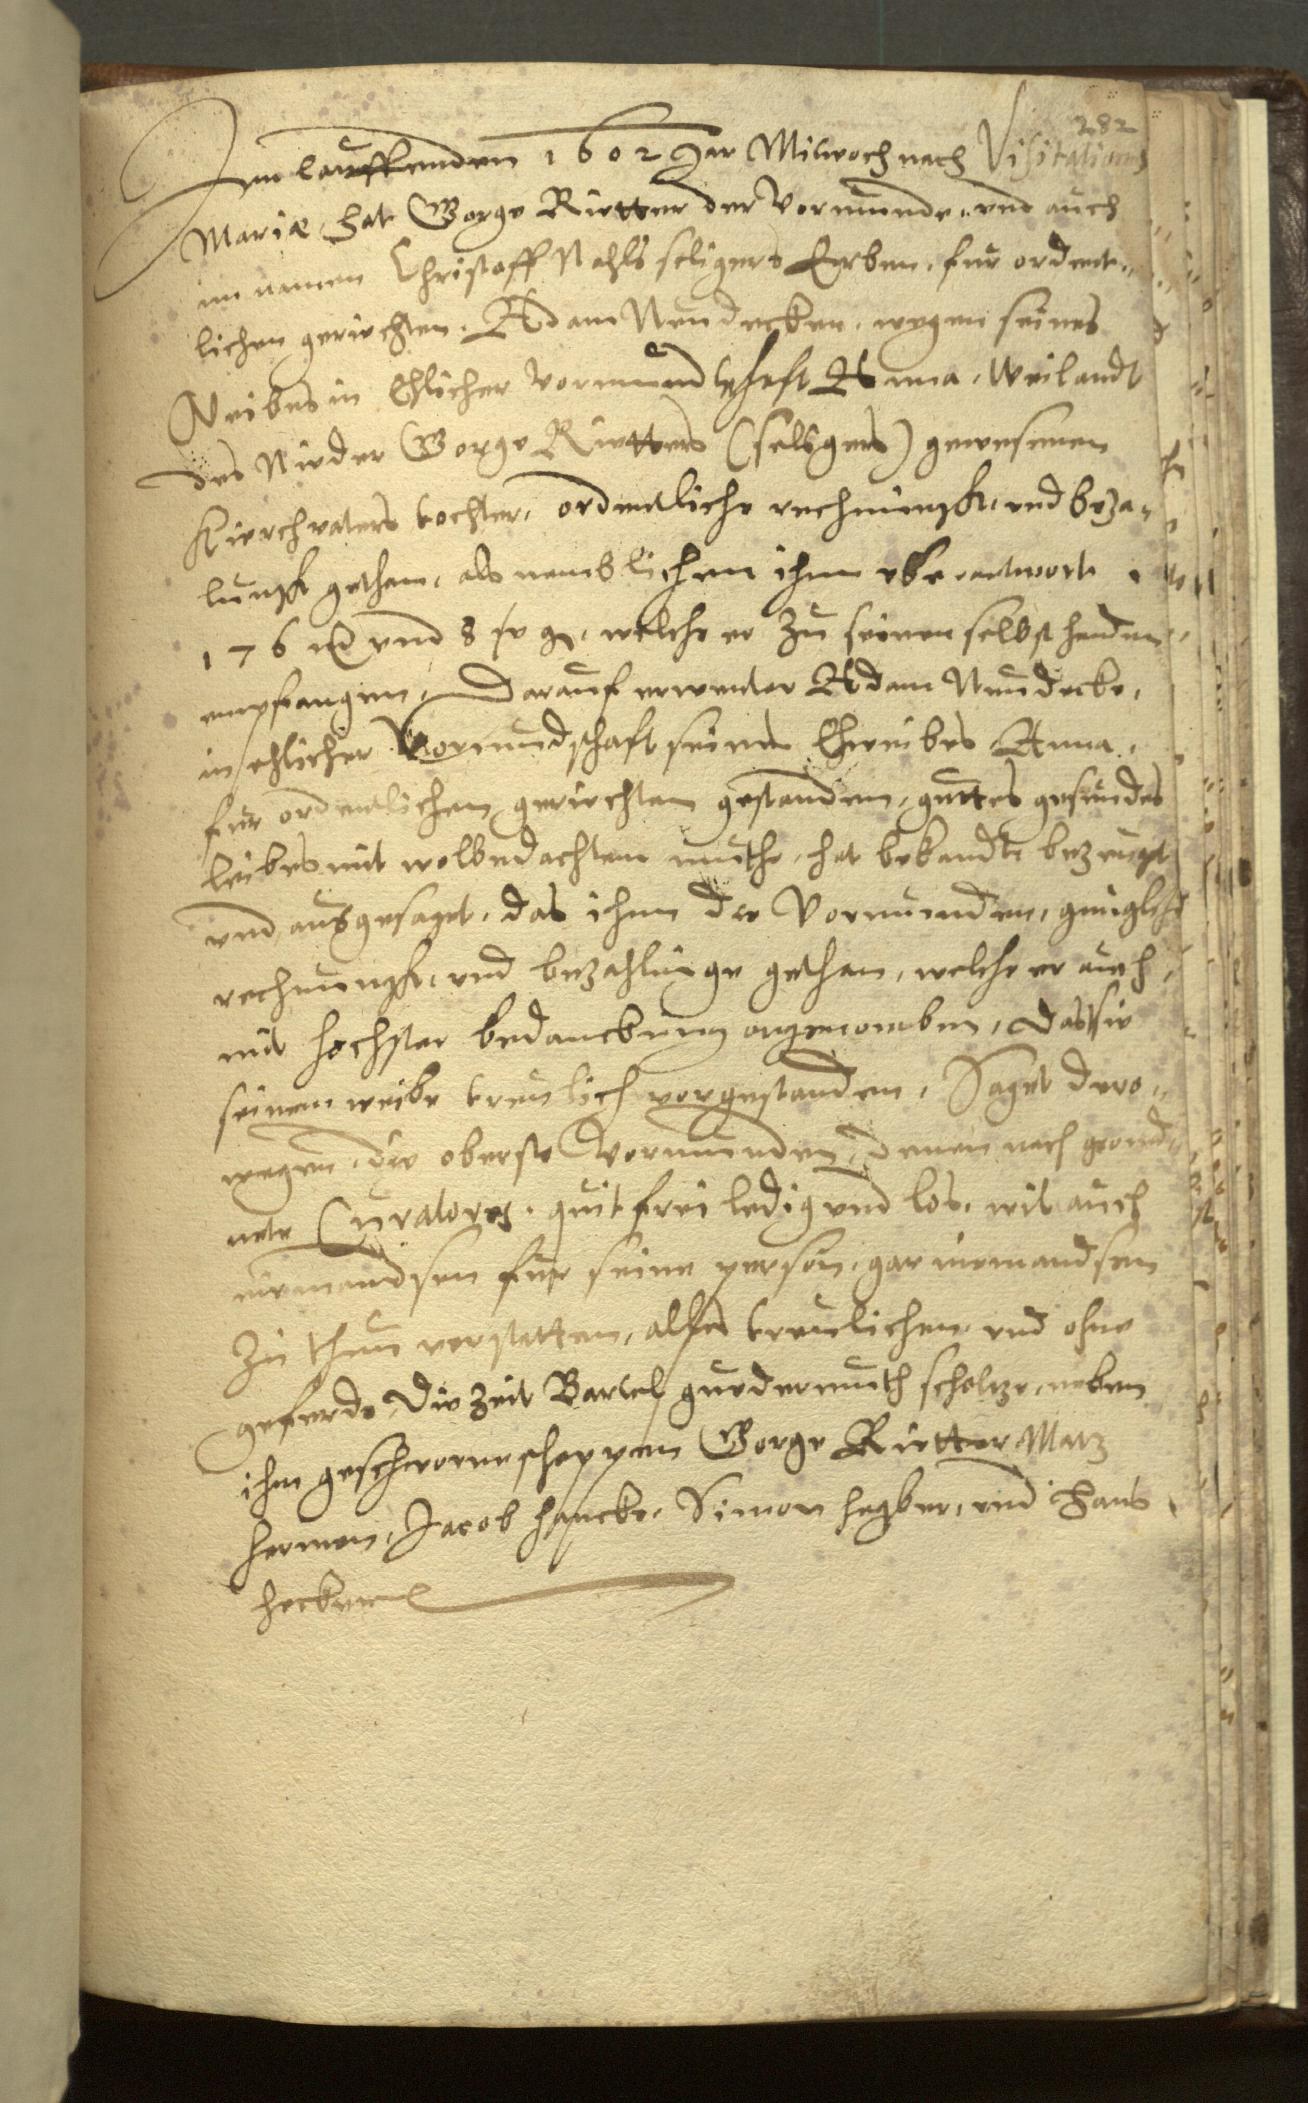 282
Im lauffenden 1602 Jar Mitwoch nach Visitationis
Mariæ, hat George Rietter der Vormunde, und auch
im namen Christoff Nahls seligers Erben, fur ordent,,
lichen gerichten, Adam Neudecker, wegen seines
Weibes in Ehlicher Vormundschaft Anna, Weilandt
des Nieder George Rietters (seligers) gewesenen
Kirchvaters tochter, ordentliche rechnungk, und beza,,
lungk gethan, als nemblichen ihm vberantwort
176 und 8 welche er zu seinen selbst henden,
empfangen, Darauf erwenter Adam Neudecke,
in ehlicher Vormundschaft seines Eheweibes Anna,
fur ordentlichen gerichten gestanden, guttes gesundes
leibes mit wolbedachtem muthe, hat bekandt bezeuget
und ausgesaget, das ihm die Vormunden, gnuglich
rechnungk, und bezahlunge gethan, welche er auch
mit hochster bedanckung angenomben, Das sie
seinem weibe treulich vorgestanden, Saget dero,,
wegen, die oberste Vormunden, denen nach geord,,
nete Curatores, quit frei ledig und los, wil auch
niemandsen fur seine person, gar niemandsen
zu thun verstatten, alles treulichen und ohne
geferde, Die Zeit Bartel gudermuth scholtze, neben
ihm geschworne scheppen George Rietter Matz
hermen, Jacob hancke, Simon hegker, und Hans
hecker